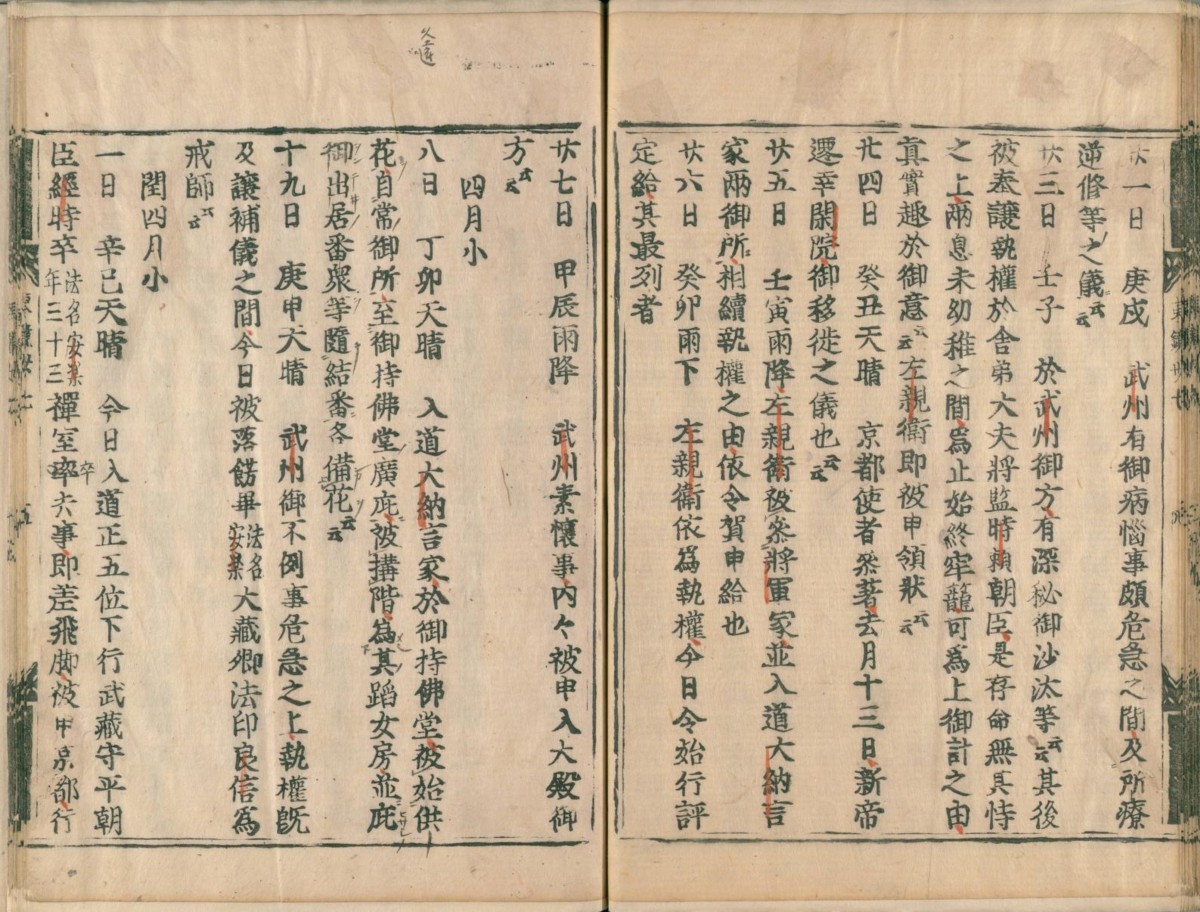 廿一日　庚戌　武州有御病惱事頗危急之間及所療
逆修等之儀云云
廿三日　壬子　於武州御方有深秘御沙汰等云云其後
被奉讓執權於舎弟大夫將監時頼朝臣是存命無其恃
之上兩息未幼稚之間爲止始終牢籠可爲上御計之由
真實趣於御意云云左親衛即被申領狀云云
廿四日　癸丑天晴　京都使者參著去月十三日新帝
遷幸閑院御移徙之儀也云云
廿五日　壬寅雨降左親衛被參將軍家並入道大納言
家兩御所相續執權之由依令賀申給也
廿六日　癸卯雨下　左親衛依爲執權今日令始行評
定給其最列者
廿七日　甲辰雨降　武州素懷事内々被申入大殿御
方云云
四月小
八日　丁卯天晴　入道大納言家於御持佛堂被始供
花自常御所至御持佛堂廣庇被搆階爲其蹈女房並庇
御出居番衆等隨結番各備花云云
十九日　庚申天晴　武州御不例事危急之上執權既
及讓補儀之間今日被落餝畢法名安樂大藏卿法印良信爲
戒師云云
閏四月小
一日　辛巳天晴　今日入道正五位下行武藏守平朝
臣經時卒法名安樂年三十三禪室卒去事即差飛脚被申京都行